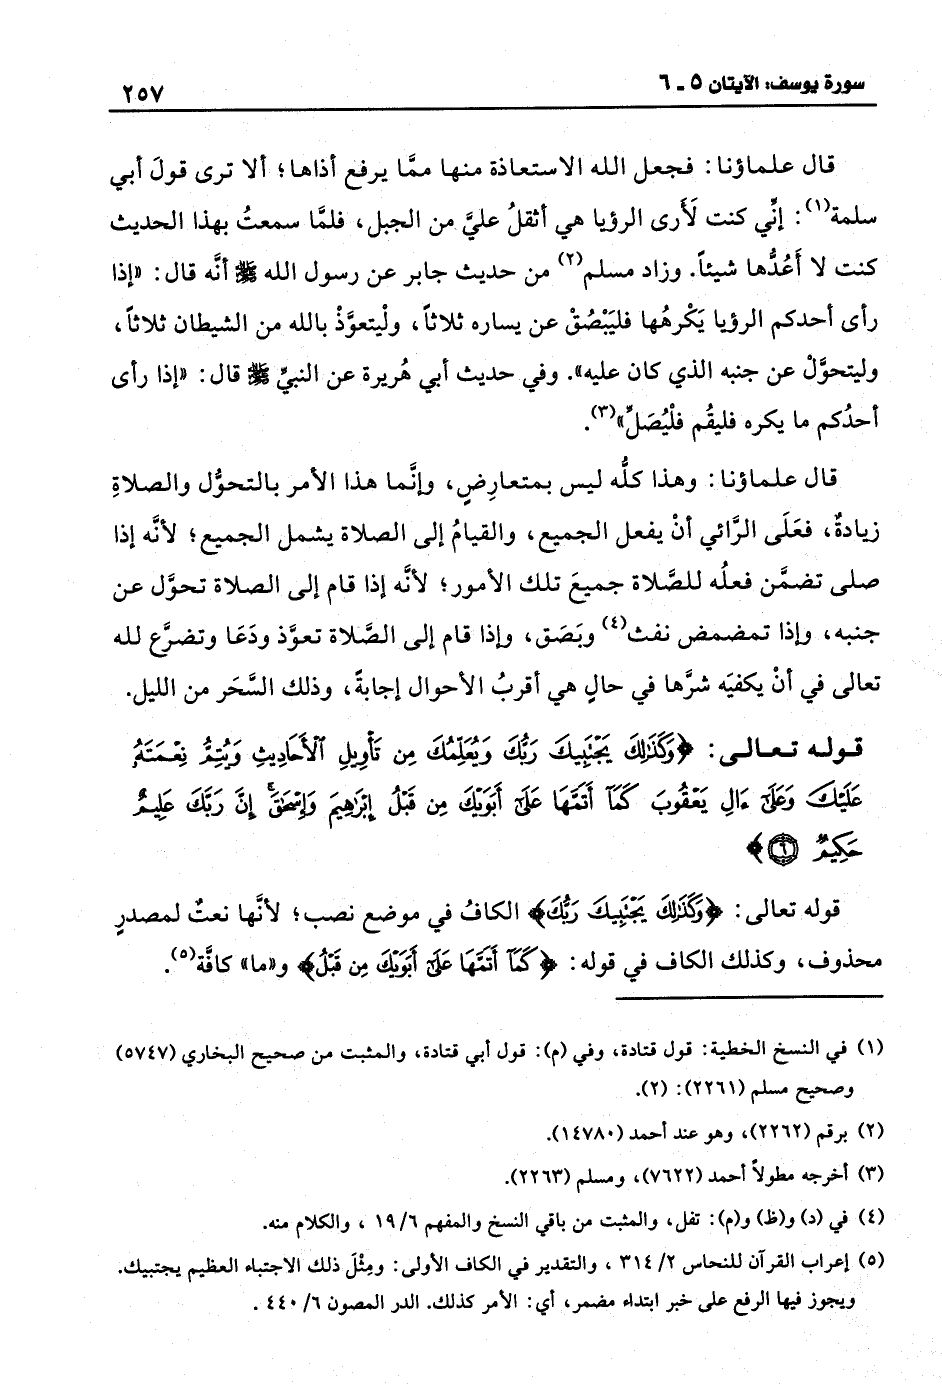 سورة يوسف: الآيتان ٥ ـ ٦
٢٥٧
قال علماؤنا: فجعل الله الاستعاذة منها ممَّا يرفع أذاها؛ ألا ترى قولَ أبي
سلمة(١): إنِّي كنت لَأَرى الرؤيا هي أثقلُ عليَّ من الجبل، فلمَّا سمعتُ بهذا الحديث
كنت لا أَعُدُّها شيئاً. وزاد مسلم(٢) من حديث جابر عن رسول الله ﷺ أنَّه قال: «إذا
رأى أحدكم الرؤيا يَكْرهُها فليَبْصُقْ عن يساره ثلاثاً، ولْيتعوَّذْ بالله من الشيطان ثلاثاً،
وليتحوَّلْ عن جنبه الذي كان عليه». وفي حديث أبي هُريرة عن النبيِّ ﷺ قال: «إذا رأى
أحدُكم ما يكره فليقُم فلْيُصَلِّ»(٣).
قال علماؤنا: وهذا كلُّه ليس بمتعارِضٍ، وإنَّما هذا الأمر بالتحوُّل والصلاةِ
زيادةٌ، فعَلَى الرَّائي أنْ يفعل الجميع، والقيامُ إلى الصلاة يشمل الجميع؛ لأنَّه إذا
صلى تضمَّن فعلُه للصَّلاة جميعَ تلك الأمور؛ لأنَّه إذا قام إلى الصلاة تحوَّل عن
جنبه، وإذا تمضمض نفث(٤) وبَصَق، وإذا قام إلى الصَّلاة تعوَّذ ودَعَا وتضرَّع لله
تعالى في أنْ يكفيَه شرَّها في حالٍ هي أقربُ الأحوال إجابةً، وذلك السَّحَر من الليل.
قوله تعالى: ﴿وَكَذَٰلِكَ يَجْتَبِيكَ رَبُّكَ وَيُعَلِّمُكَ مِن تَأْوِيلِ ٱلْأَحَادِيثِ وَيُتِمُّ نِعْمَتَهُۥ
عَلَيْكَ وَعَلَىٰٓ ءَالِ يَعْقُوبَ كَمَآ أَتَمَّهَا عَلَىٰٓ أَبَوَيْكَ مِن قَبْلُ إِبْرَٰهِيمَ وَإِسْحَٰقَۚ إِنَّ رَبَّكَ عَلِيمٌ
حَكِيمٌ ۝٦﴾
قوله تعالى: ﴿وَكَذَٰلِكَ يَجْتَبِيكَ رَبُّكَ﴾ الكافُ في موضع نصب؛ لأنَّها نعتٌ لمصدرٍ
محذوف، وكذلك الكاف في قوله: ﴿كَمَآ أَتَمَّهَا عَلَىٰٓ أَبَوَيْكَ مِن قَبْلُ﴾ و«ما» كافَّة(٥).
(١) في النسخ الخطية: قول قتادة، وفي (م): قول أبي قتادة، والمثبت من صحيح البخاري (٥٧٤٧)
وصحيح مسلم (٢٢٦١): (٢).
(٢) برقم (٢٢٦٢)، وهو عند أحمد (١٤٧٨٠).
(٣) أخرجه مطولاً أحمد (٧٦٢٢)، ومسلم (٢٢٦٣).
(٤) في (د) و(ظ) و(م): تفل، والمثبت من باقي النسخ والمفهم ١٩/٦ ، والكلام منه.
(٥) إعراب القرآن للنحاس ٣١٤/٢ ، والتقدير في الكاف الأولى: ومِثْلَ ذلك الاجتباء العظيم يجتبيك.
ويجوز فيها الرفع على خبر ابتداء مضمر، أي: الأمر كذلك. الدر المصون ٤٤٠/٦ .